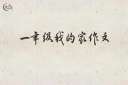 一年级我的家作文